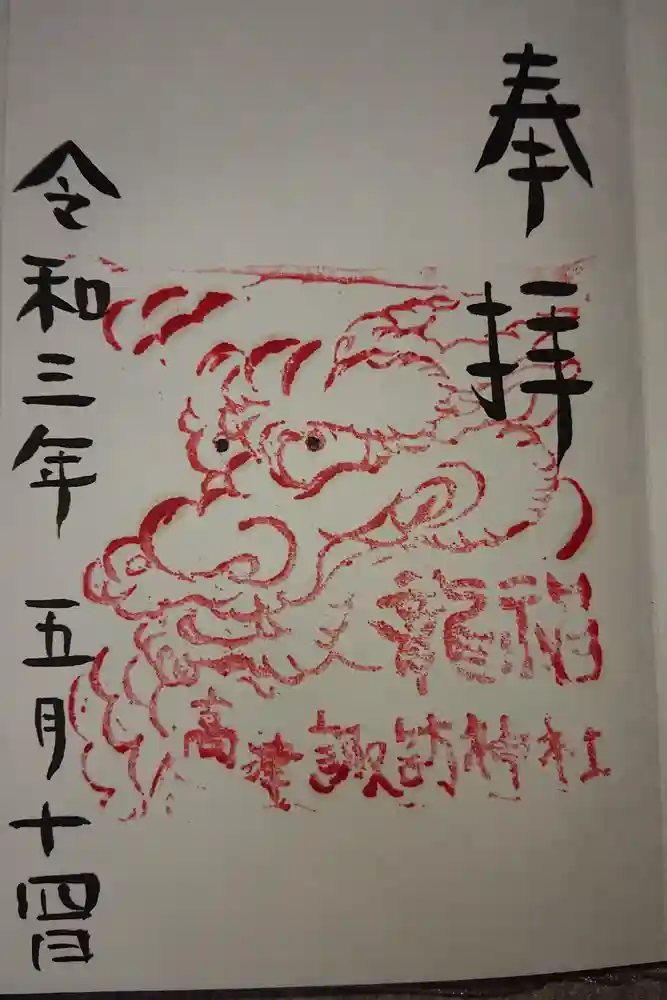 奉拝
高津諏訪神社
令和三年 五月十四日